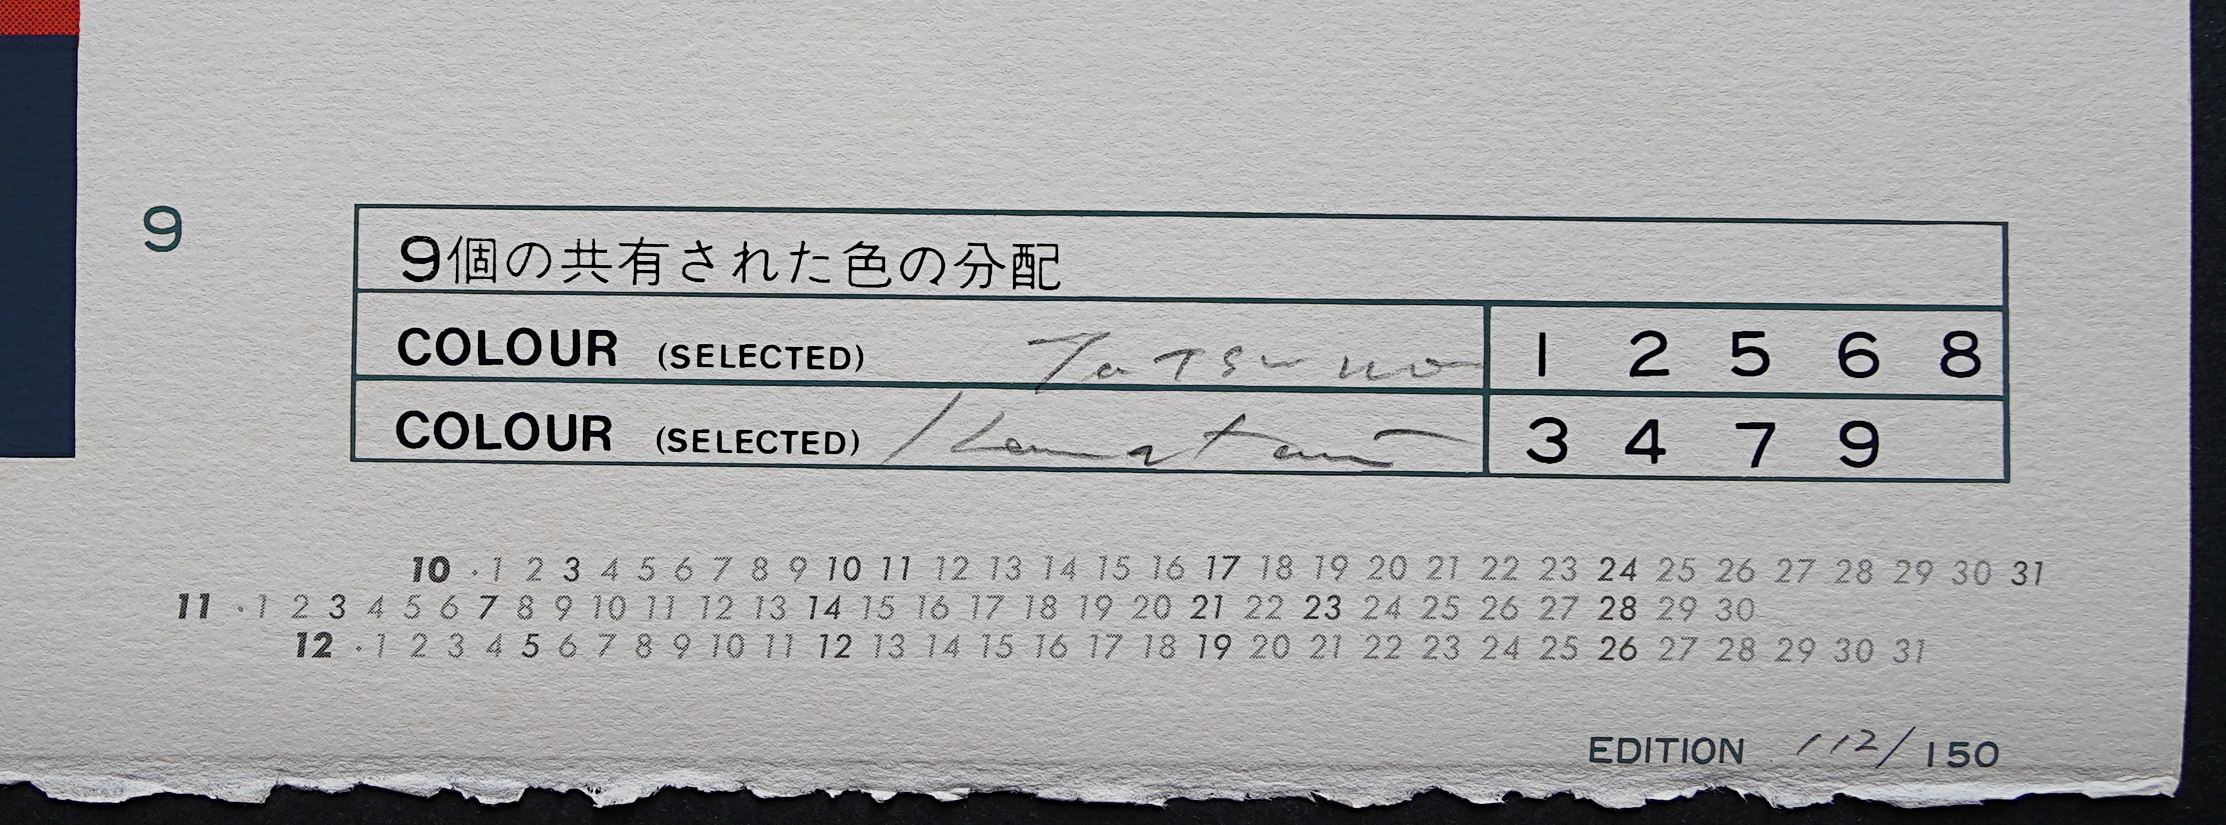 9
9個の共有された色の分配
COLOUR (SELECTED) Tatsuno 1 2 5 6 8
COLOUR (SELECTED) 3 4 7 9
10 · 1 2 3 4 5 6 7 8 9 10 11 12 13 14 15 16 17 18 19 20 21 22 23 24 25 26 27 28 29 30 31
11 · 1 2 3 4 5 6 7 8 9 10 11 12 13 14 15 16 17 18 19 20 21 22 23 24 25 26 27 28 29 30
12 · 1 2 3 4 5 6 7 8 9 10 11 12 13 14 15 16 17 18 19 20 21 22 23 24 25 26 27 28 29 30 31
EDITION 112/150